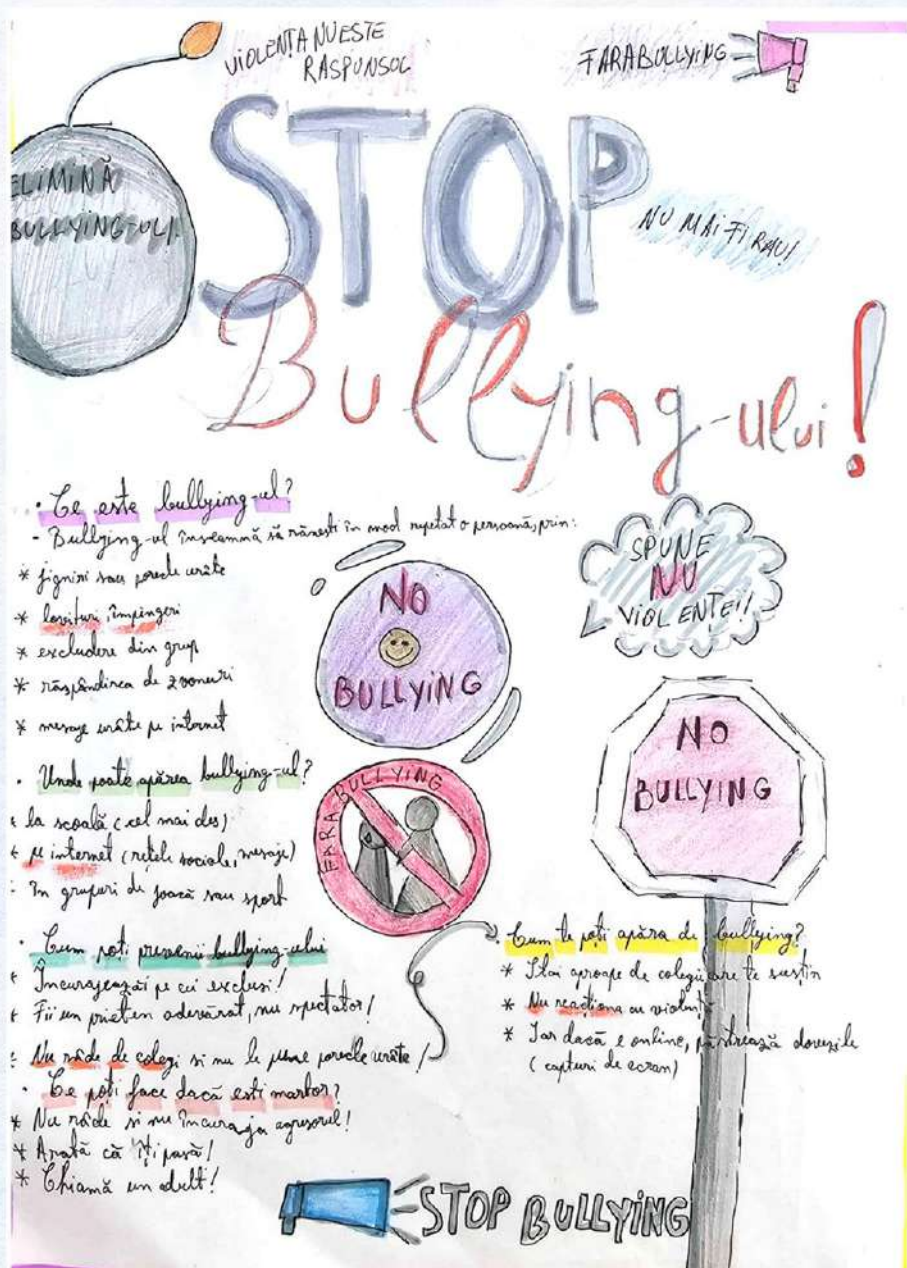 VIOLENȚA NU ESTE
RASPUNSOL
FARABULLYING
ELIMINĂ
BULLYING-UL!
STOP
NU MAI FI RAU!
Bullying-ului!
• Ce este bullying-ul?
- Bullying-ul înseamnă să rănești în mod repetat o persoană, prin:
* jigniri sau porecle urâte
* lovituri, împingeri
* excludere din grup
* răspândirea de zvonuri
* mesaje urâte pe internet
SPUNE
NU
VIOLENTEI!
NO
BULLYING
NO
BULLYING
FARA BULLYING
• Unde poate apărea bullying-ul?
* la scoală (cel mai des)
* pe internet (rețele sociale, mesaje)
* în grupuri de joacă sau sport
• Cum poti prevenii bullying-ului
* Încurajează-i pe cei exclusi!
* Fii un prieten adevărat, nu spectator!
* Nu râde de colegi si nu le pune porecle urâte!
• Ce poți face dacă esti martor?
* Nu râde si nu încuraja agresorul!
* Arată că îți pasă!
* Chiamă un adult!
• Cum te poți apăra de bullying?
* Stai aproape de colegii care te susțin
* Nu reacționa cu violență
* Iar dacă e online, păstrează dovezile
(capturi de ecran)
STOP BULLYING